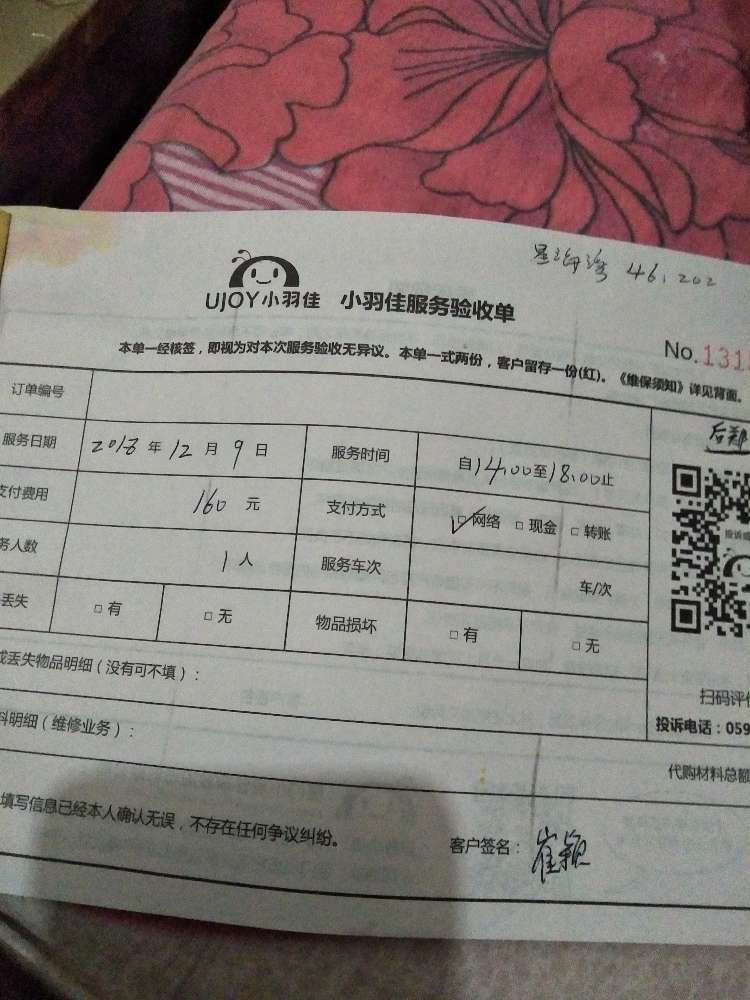 星海湾 46.202
UJOY小羽佳 小羽佳服务验收单
No.131
本单一经核签，即视为对本次服务验收无异议。本单一式两份，客户留存一份(红)。《维保须知》详见背面。
订单编号
服务日期 2018年12月9日 服务时间 自14:00至18:00止
支付费用 160元 支付方式 □网络 □现金 □转账
务人数 1人 服务车次 车/次
丢失 □有 □无 物品损坏 □有 □无
或丢失物品明细（没有可不填）：
扫码评价
料明细（维修业务）：
投诉电话：059
代购材料总额
填写信息已经本人确认无误，不存在任何争议纠纷。
客户签名：崔颖